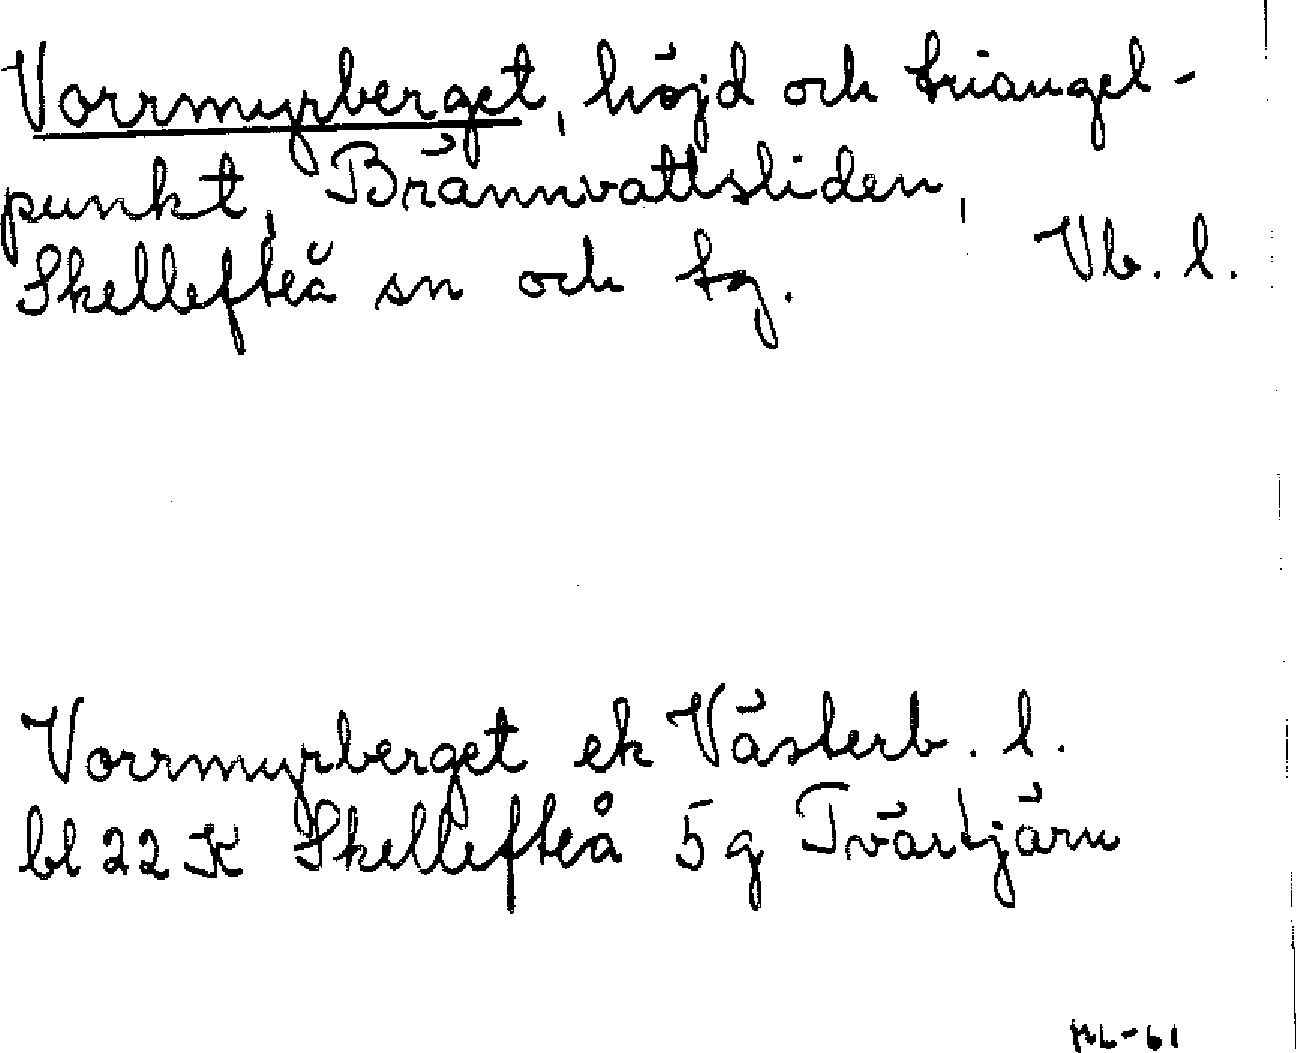 Vorrmyrberget, höjd och triangel-
punkt, Brännvattsliden,
Skellefteå sn och tg. Vb. l.
Vorrmyrberget ek Västerb. l.
bl 22 K Skellefteå 5 g Tvärtjärn